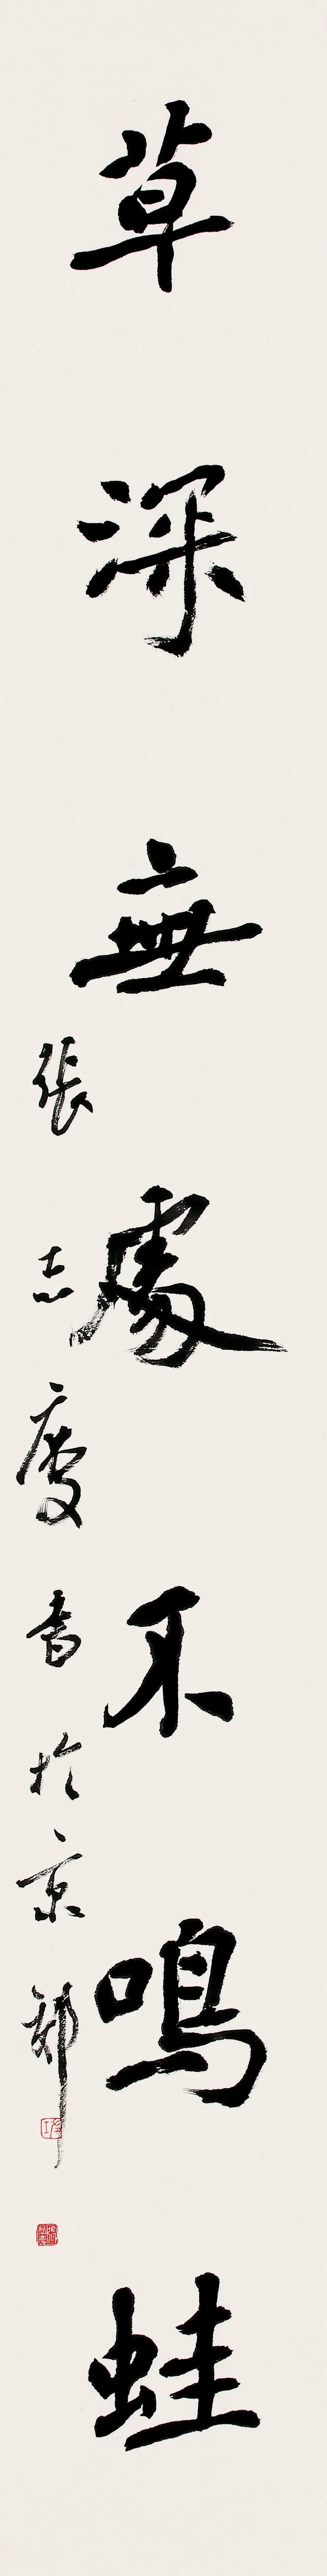 草深無處不鳴蛙
張志慶書於京郊